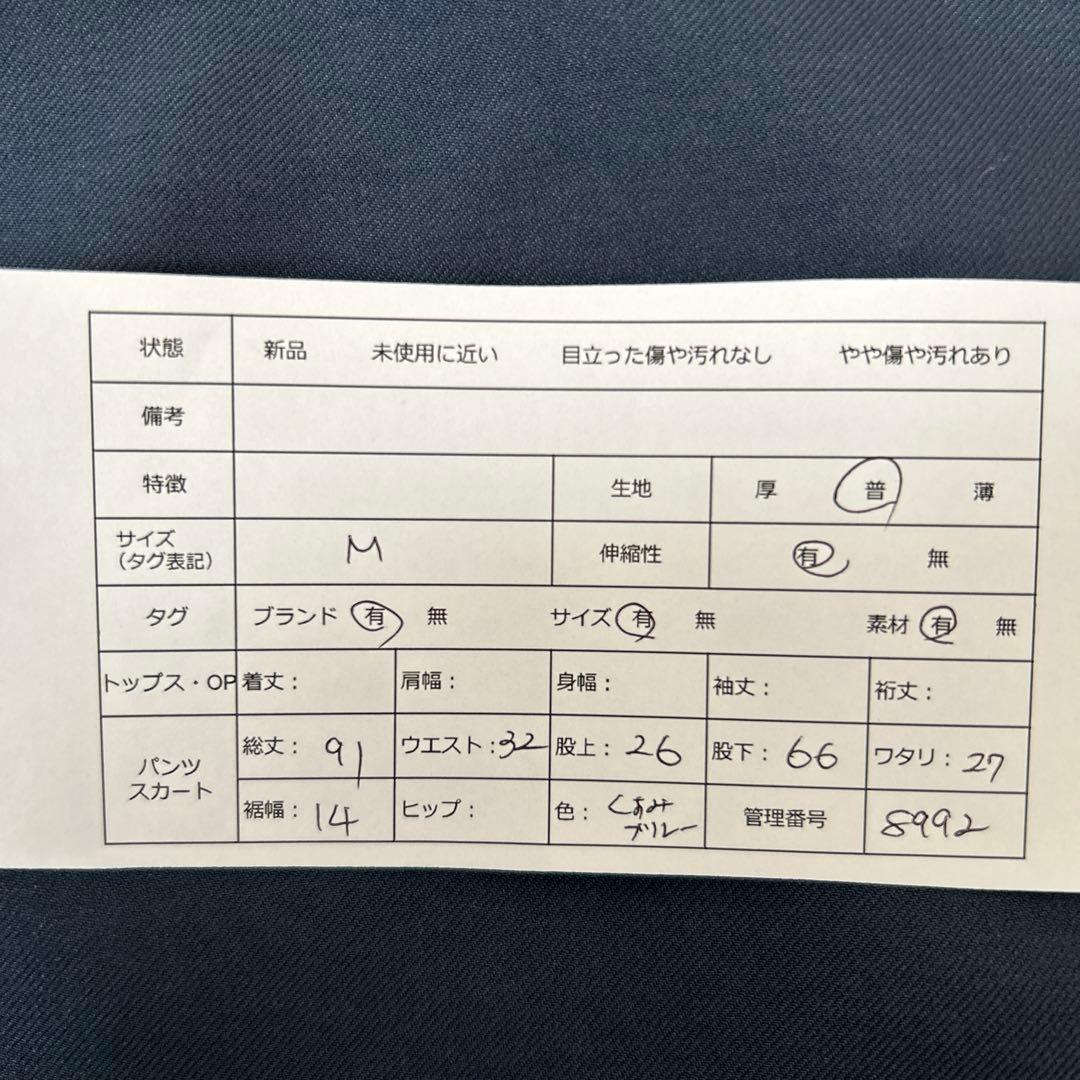 状態 新品 未使用に近い 目立った傷や汚れなし やや傷や汚れあり
備考
特徴 生地 厚 普 薄
サイズ
(タグ表記) M 伸縮性 有 無
タグ ブランド 有 無 サイズ 有 無 素材 有 無
トップス・OP 着丈: 肩幅: 身幅: 袖丈: 裄丈:
パンツ
スカート
総丈: 91 ウエスト: 32 股上: 26 股下: 66 ワタリ: 27
裾幅: 14 ヒップ: 色: くすみ
ブルー
管理番号 8992